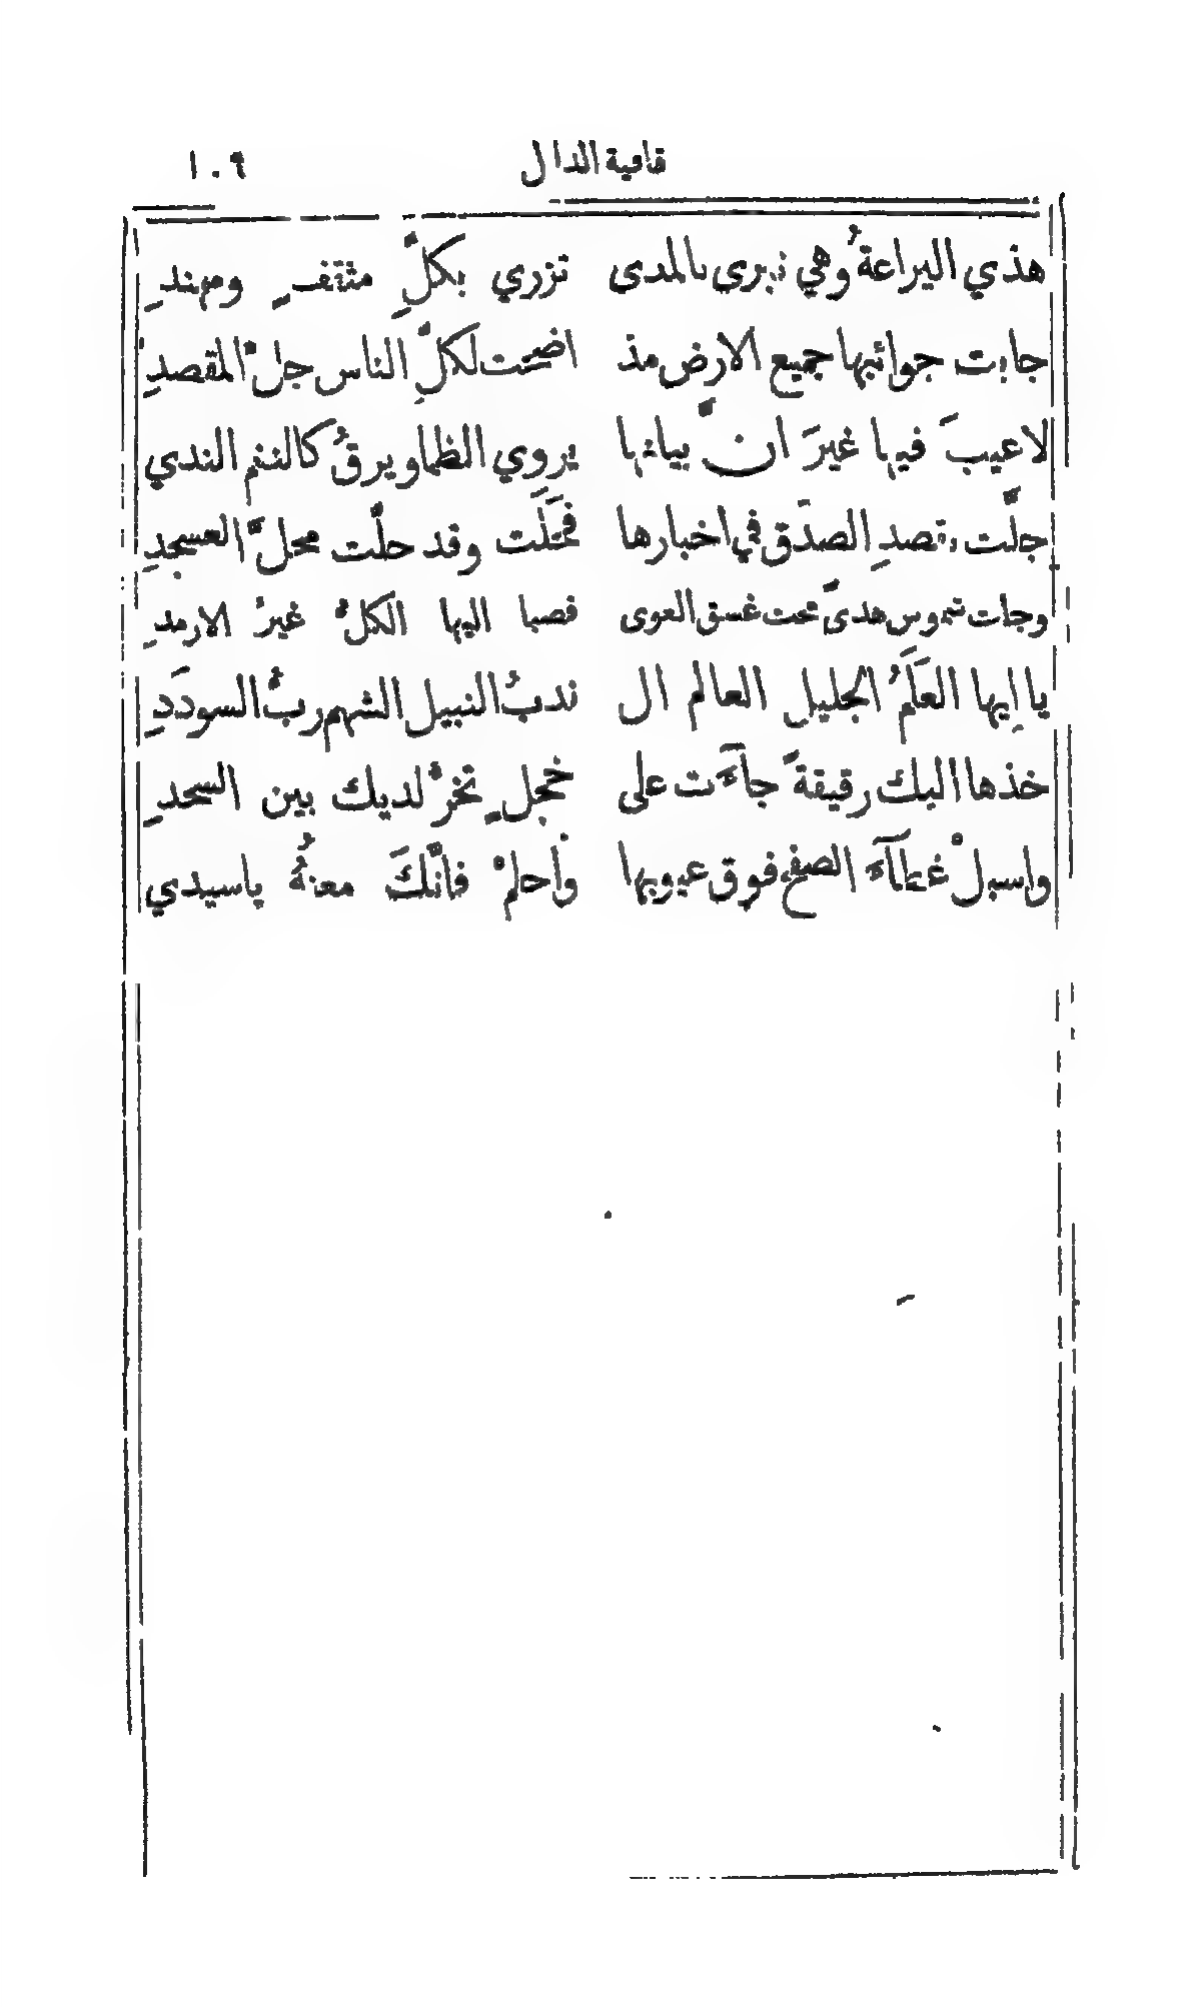 قافية الدال ١٠٩
هذي اليراعةُ وهي تبرى بالمدى تزري بكلِّ مثقفٍ ومهندِ
جابت جوائبها جميع الارض مذ اضحت لكلِّ الناس جلَّ المقصدِ
لا عيبَ فيها غيرَ انَّ بيانها يروي الظما ويرقُ كالنغم الندي
جلَّت بقصدِ الصدَق في اخبارها فتحَلَّت وقد حلَّت محلَّ العسجدِ
وجات شموس هدىً تحت غسق الغوى فصبا اليها الكلُّ غيرُ الارمدِ
يا ايها العلَمُ الجليل العالم ال ندبُ النبيل الشهم ربُّ السوددِ
خذها اليك رقيقةً جآءَت على خجلٍ تخرُّ لديك بين السجدِ
واسبلْ غطآءَ الصفح فوق عيوبها واحلمْ فانَّكَ معنهُ ياسيدي